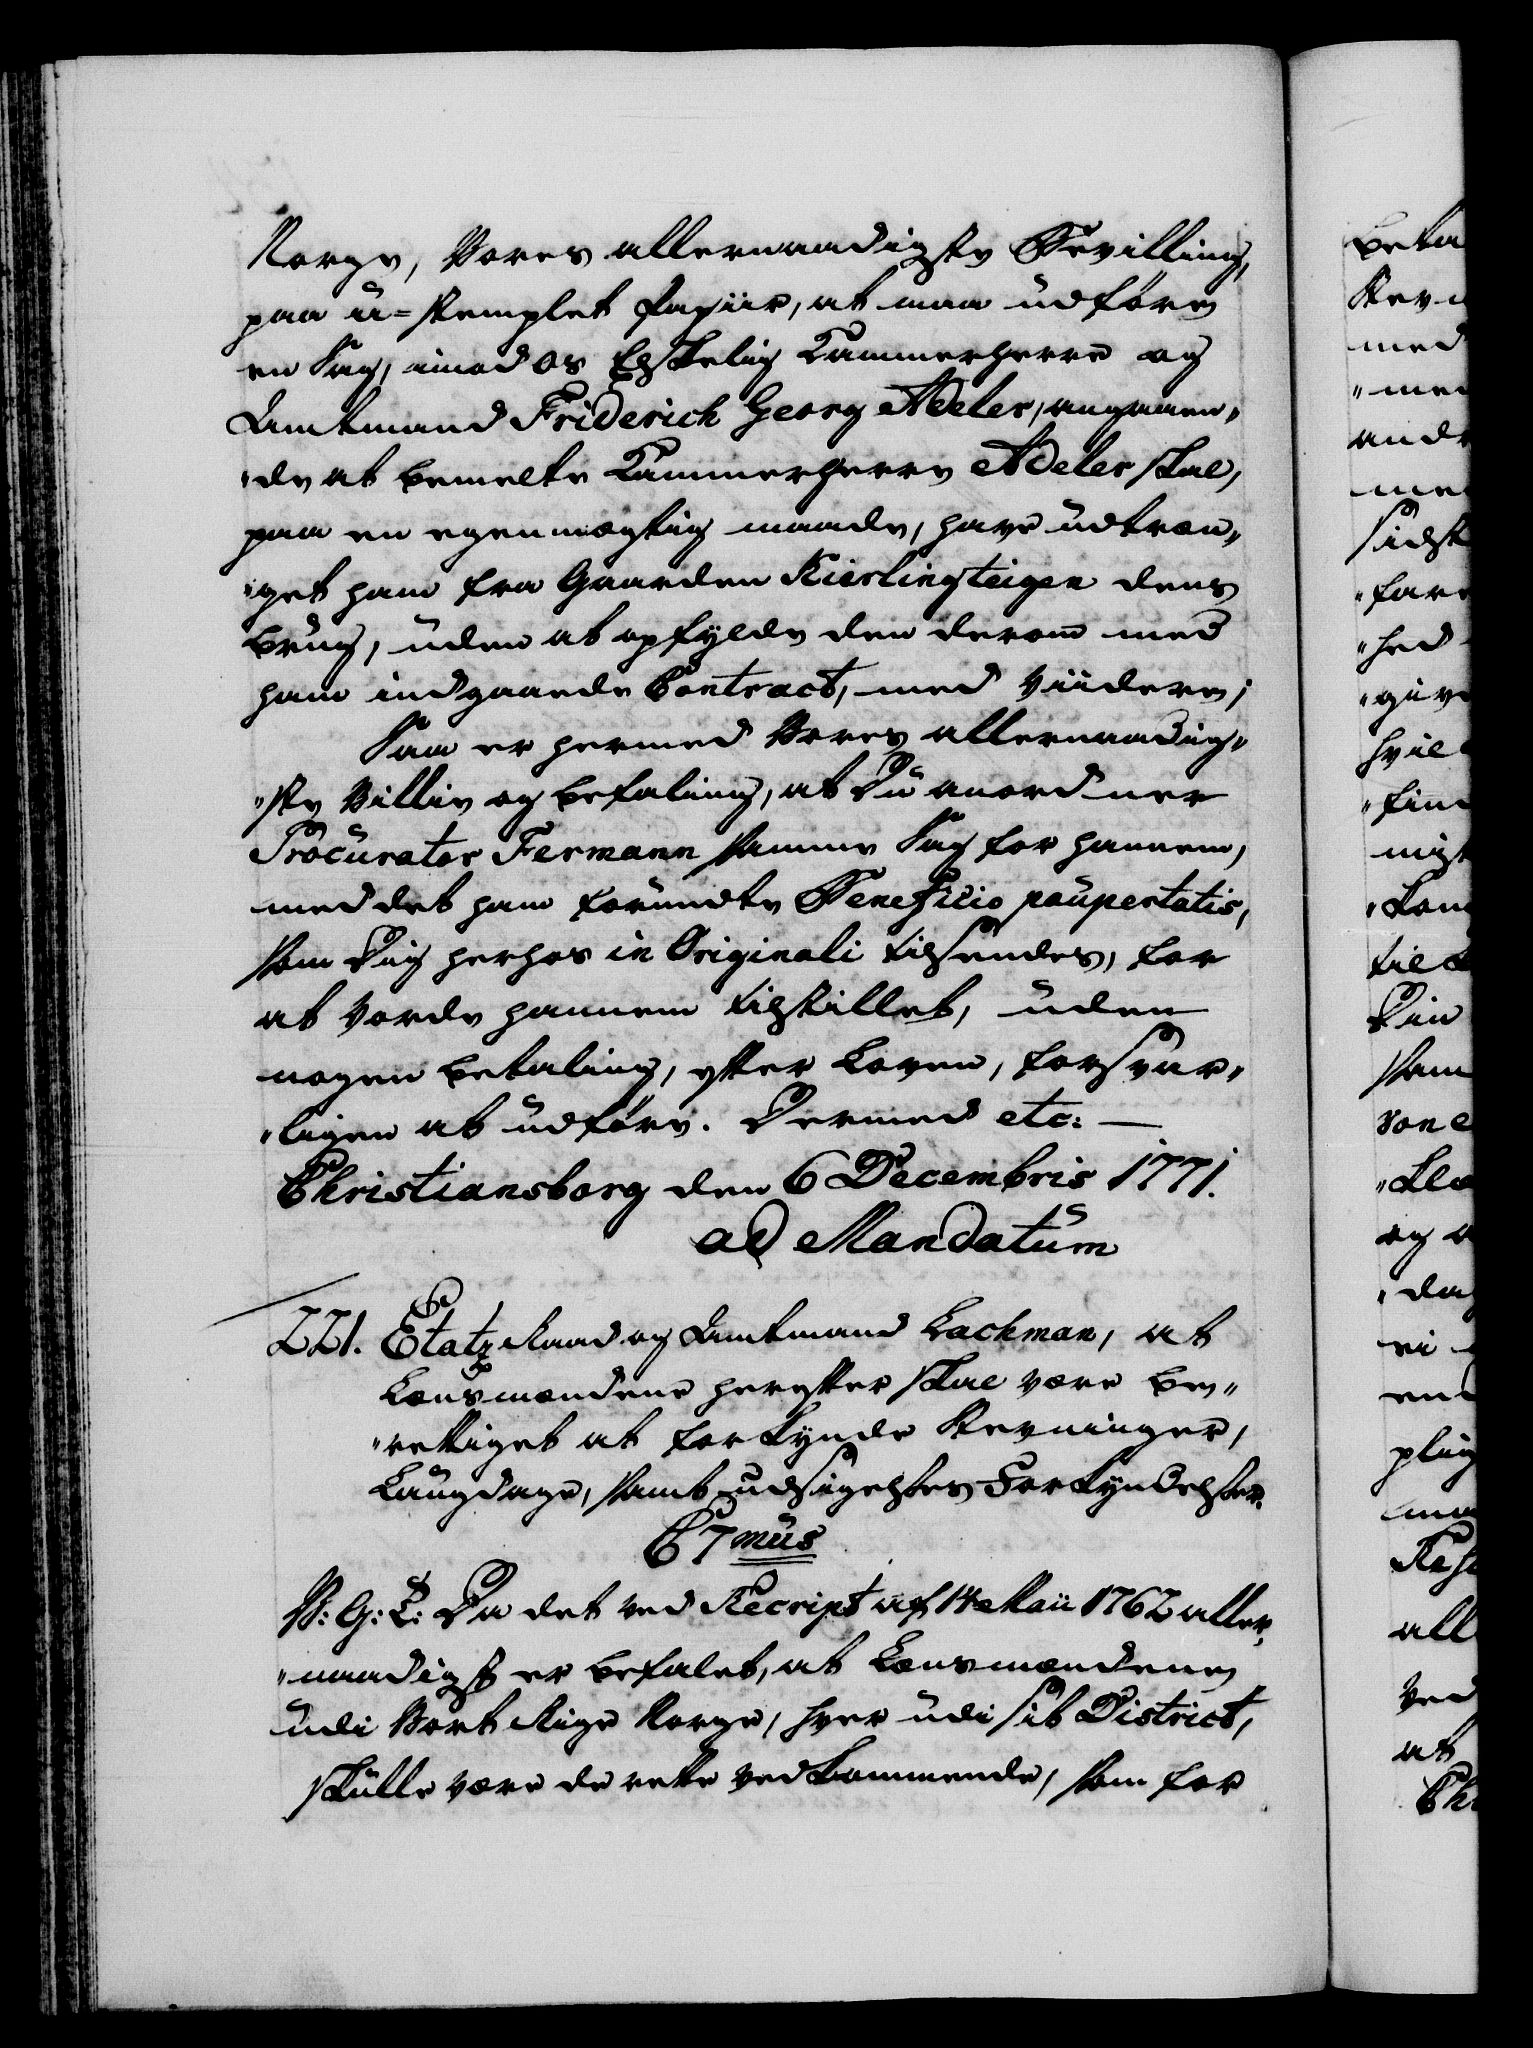 Norge, Vores allernaadigste Bevilling,
paa u-stemplet Papiir, at maa udføre
en Sag, imod os Elskelig Kammerherre og
Amtmand Friderich Georg Adeler, angaaen„
„de at bemelte Kammerherre Adeler skal,
paa en egenmægtig maade, have udtræn„
„get ham fra Gaarden Kieslingteigen dens
brug, uden at opfylde den derom med
ham indgaaede Contract, med Viidere;
Saa er hermed Vores allernaadig„
„ste Villie og befaling, at Du anordner
Procurator Fermann samme Sag for hannem,
med det ham forundte Beneficio paupertatis,
som Dig herhos in Originali tilsendes, for
at vorde hannem tilstillet, uden
nogen betaling, efter Loven, forsvar„
„ligen at udføre. Dermed etc: —
Christiansborg den 6 Decembris 1771.
ad Mandatum
221. Etatz Raad og Amtmand Lachman, at
Lensmændene herefter skal være be„
„rettiget at forkynde Stevninger,
Laugdage, samt udsigelses Forkyndelser.
C 7mus
V: G: T: Da det ved Recript af 14 Maii 1762 aller„
„naadigst er befalet, at Lensmændene
udi Vort Rige Norge, hver udi sit District,
skulle være de rette vedkommende, som for